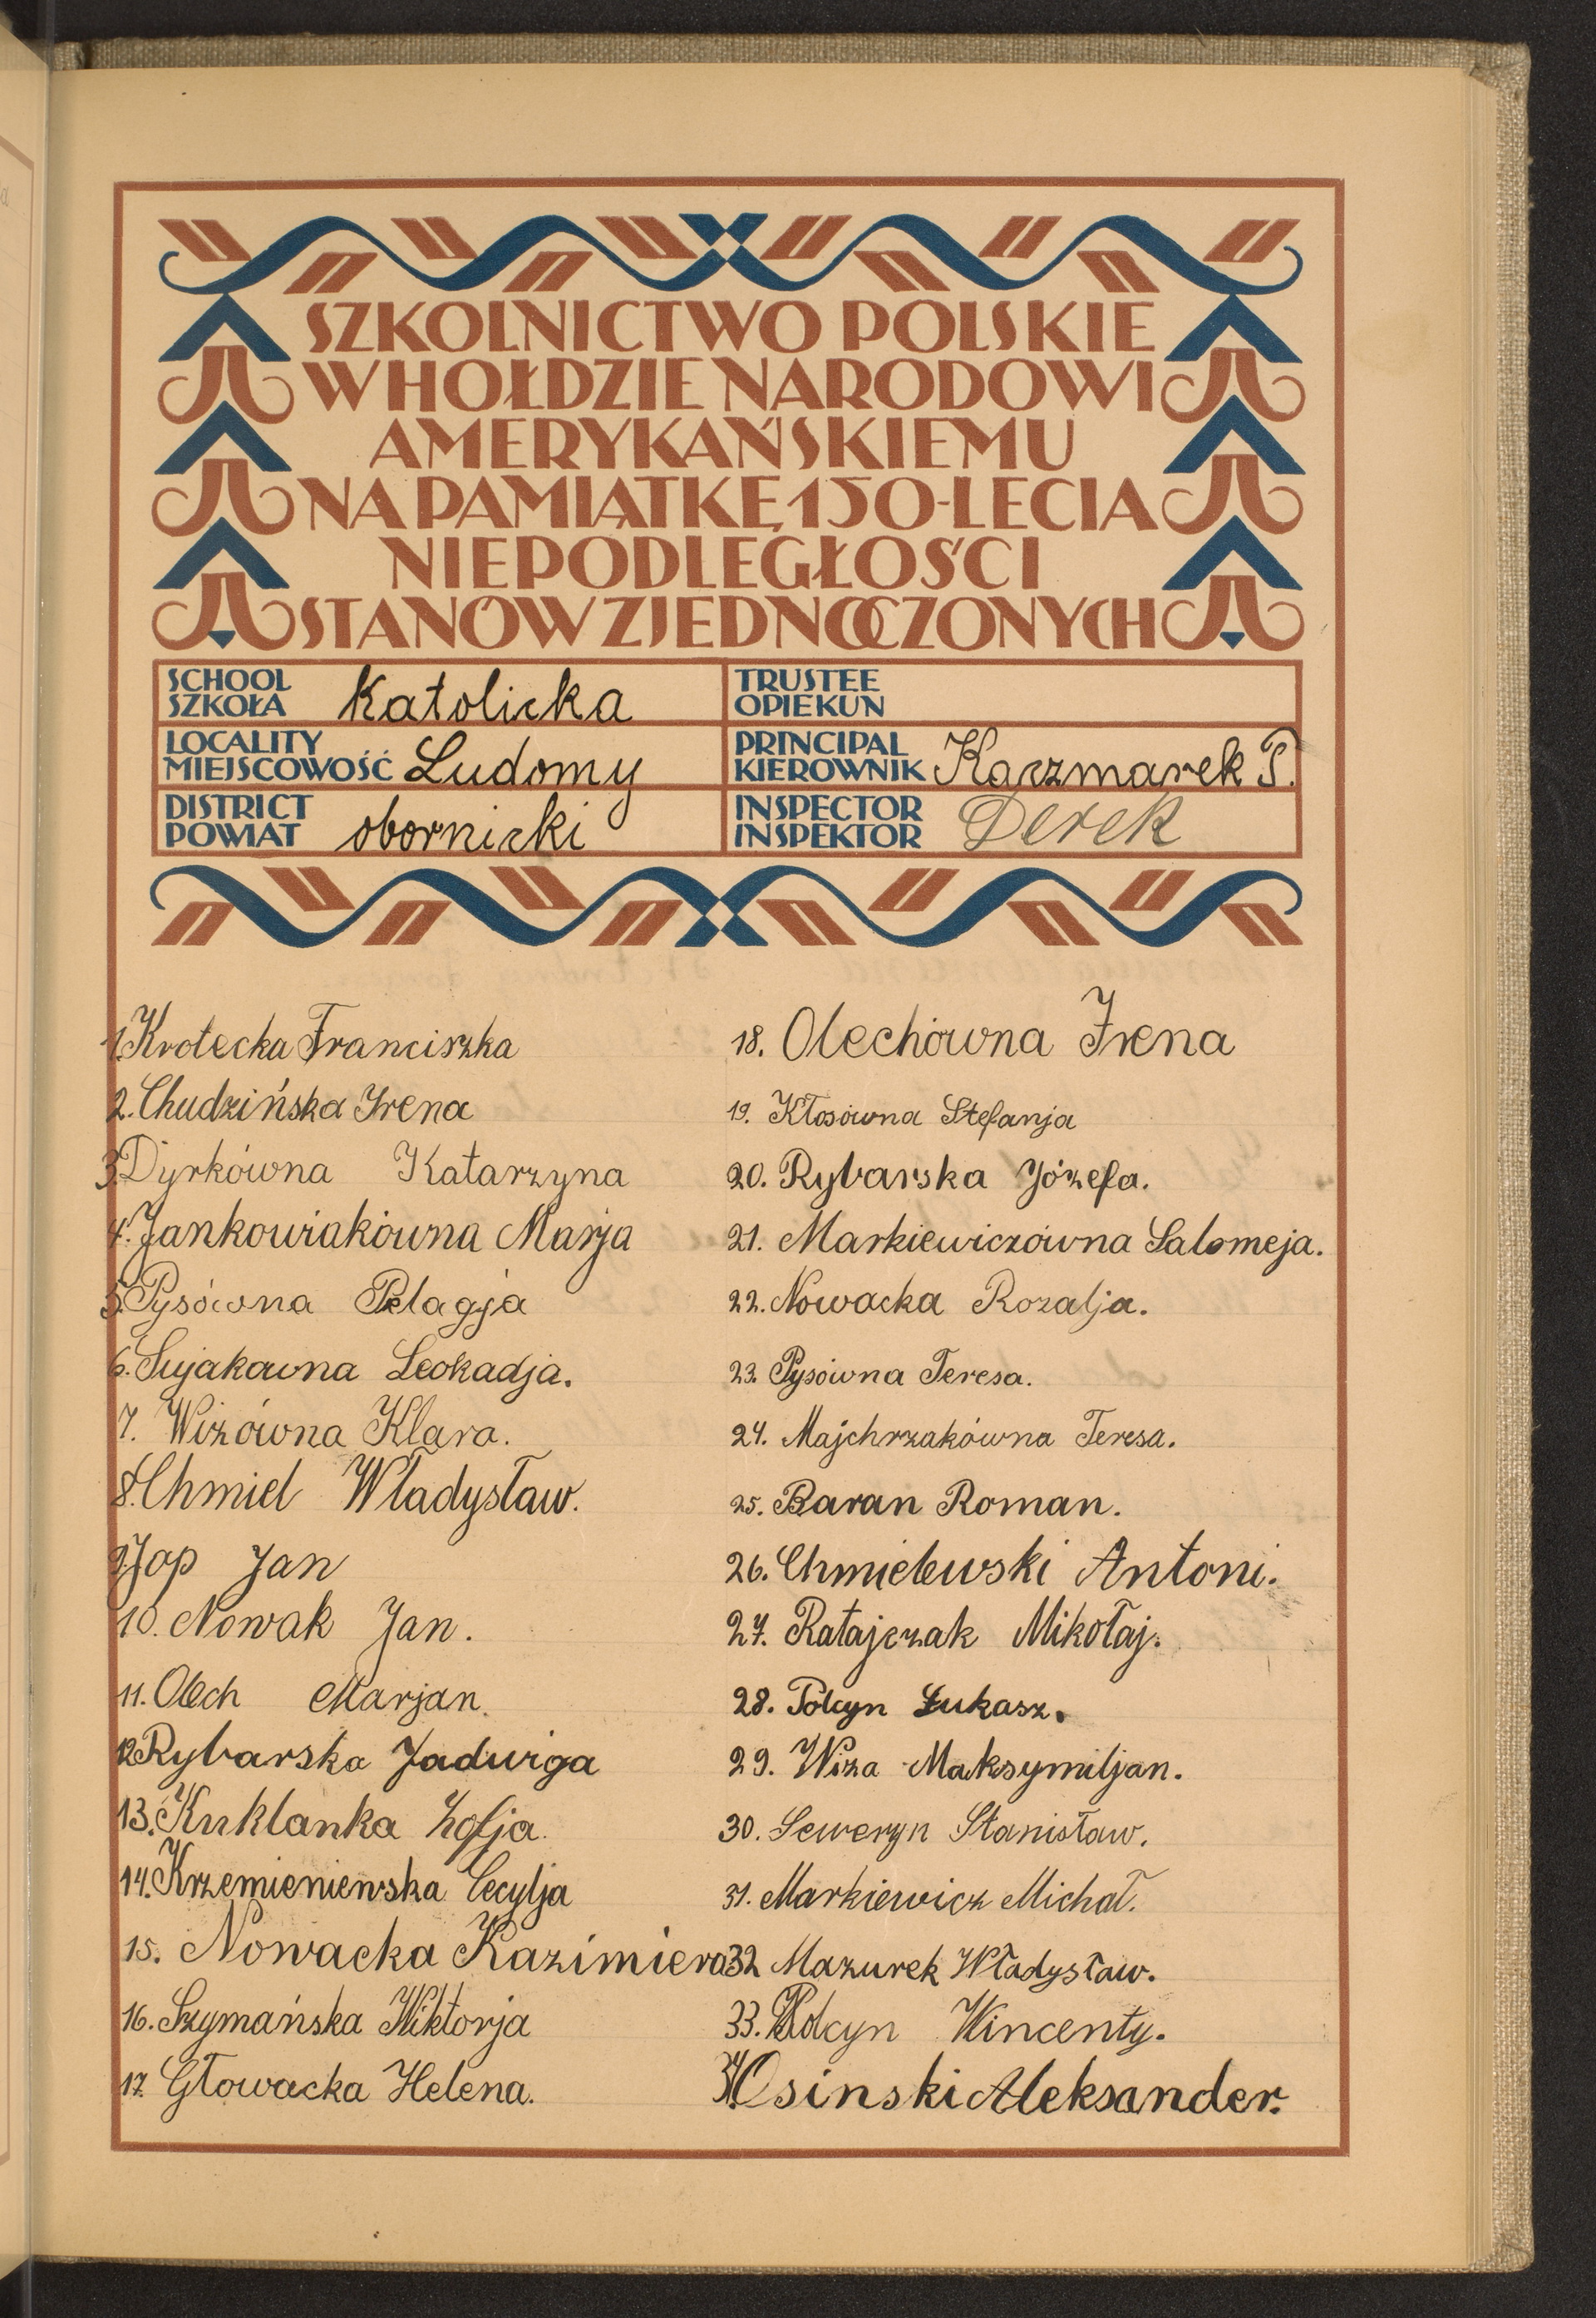 SZKOLNICTWO POLSKIE
W HOŁDZIE NARODOWI
AMERYKAŃSKIEMU
NA PAMIĄTKĘ 150-LECIA
NIEPODLEGŁOŚCI
STANÓW ZJEDNOCZONYCH
SCHOOL
SZKOŁA Katolicka
TRUSTEE
OPIEKUN
LOCALITY
MIEJSCOWOŚĆ Ludomy
PRINCIPAL
KIEROWNIK Kaczmarek P.
DISTRICT
POWIAT obornicki
INSPECTOR
INSPEKTOR Derek
1. Krotecka Franciszka
2. Chudzińska Irena
3. Dyrkówna Katarzyna
4. Jankowiakówna Marja
5. Pysówna Pelagja
6. Sujakówna Leokadja.
7. Wizówna Klara.
8. Chmiel Władysław.
9. Jop Jan
10. Nowak Jan.
11. Olech Marjan.
12. Rybarska Jadwiga
13. Kuklanka Zofja.
14. Krzemieniewska Cecylja
15. Nowacka Kazimiera
16. Szymańska Wiktorja
17. Głowacka Helena.
18. Olechówna Irena
19. Kłosówna Stefanja
20. Rybarska Józefa.
21. Markiewiczówna Salomeja.
22. Nowacka Rozalja.
23. Pysówna Teresa.
24. Majchrzakówna Teresa.
25. Baran Roman.
26. Chmielewski Antoni.
27. Ratajczak Mikołaj.
28. Polcyn Łukasz.
29. Wiza Maksymiljan.
30. Seweryn Stanisław.
31. Markiewicz Michał.
32 Mazurek Władysław.
33. Polcyn Wincenty.
34. Osinski Aleksander.